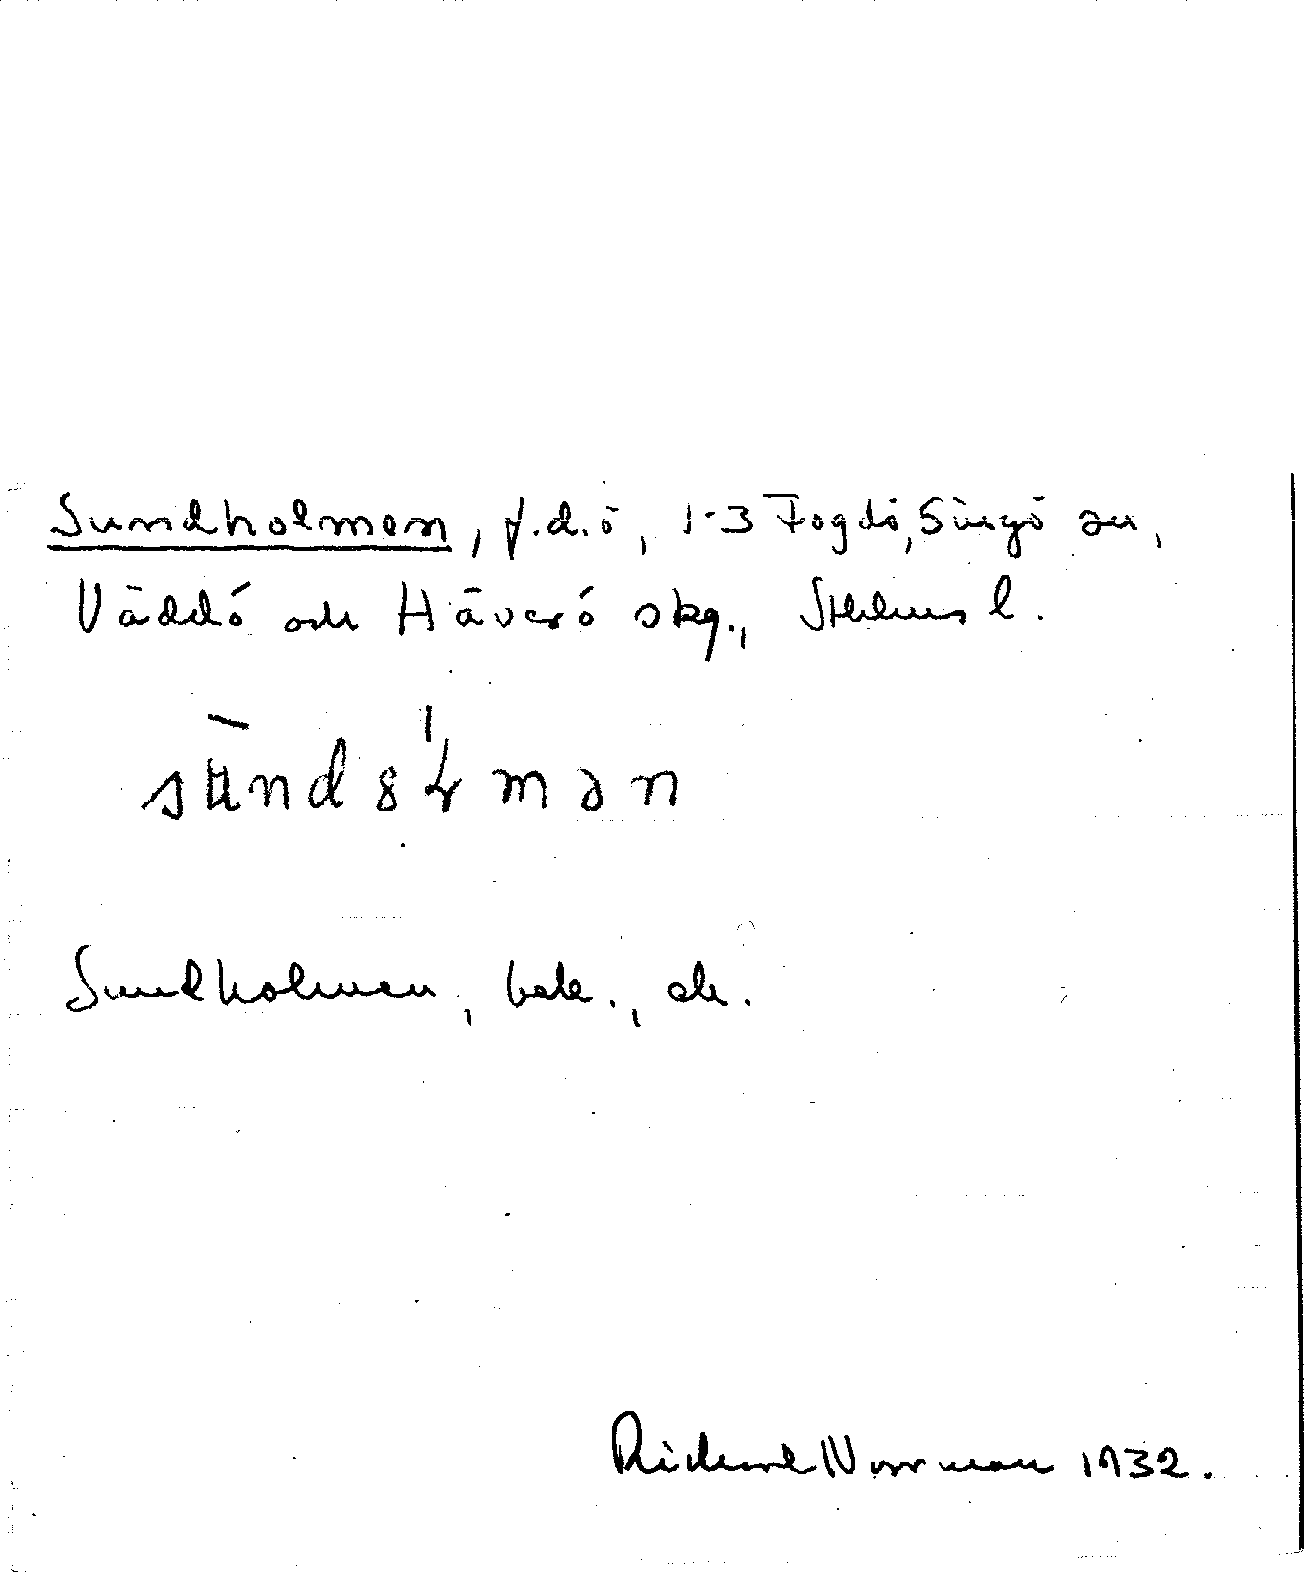 Sundholmen, f.d. ö, 1-3 Fogdö, Singö sn,
Väddö och Häverö skg., Sthlms l.
Sundholmen, bek., ek.
Richard Norrman 1932.